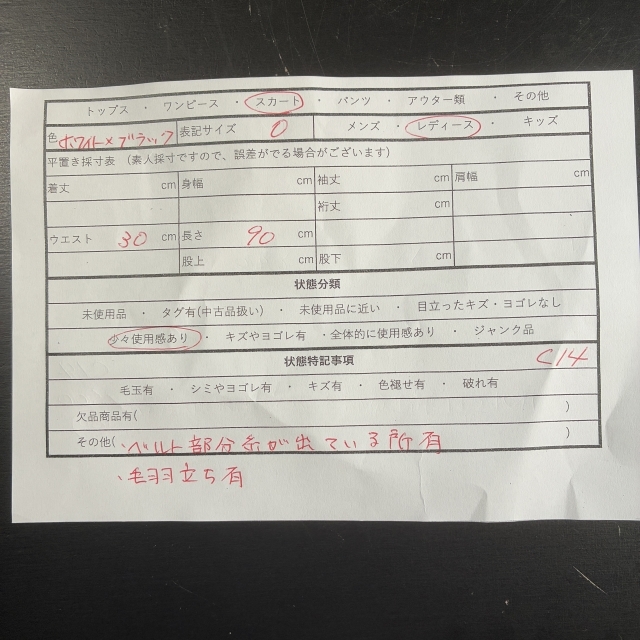 トップス ・ ワンピース ・ スカート ・ パンツ ・ アウター類 ・ その他
色 ホワイト×ブラック 表記サイズ 0 メンズ ・ レディース ・ キッズ
平置き採寸表 (素人採寸ですので、誤差がでる場合がございます)
着丈 cm 身幅 cm 袖丈 cm 肩幅 cm
裄丈 cm
ウエスト 30 cm 長さ 90 cm
股上 cm 股下 cm
状態分類
未使用品 ・ タグ有(中古品扱い) ・ 未使用品に近い ・ 目立ったキズ・ヨゴレなし
少々使用感あり ・ キズやヨゴレ有 ・全体的に使用感あり ・ ジャンク品
状態特記事項 C14
毛玉有 ・ シミやヨゴレ有 ・ キズ有 ・ 色褪せ有 ・ 破れ有
欠品商品有( )
その他( ・ベルト部分糸が出ている所有 )
・毛羽立ち有